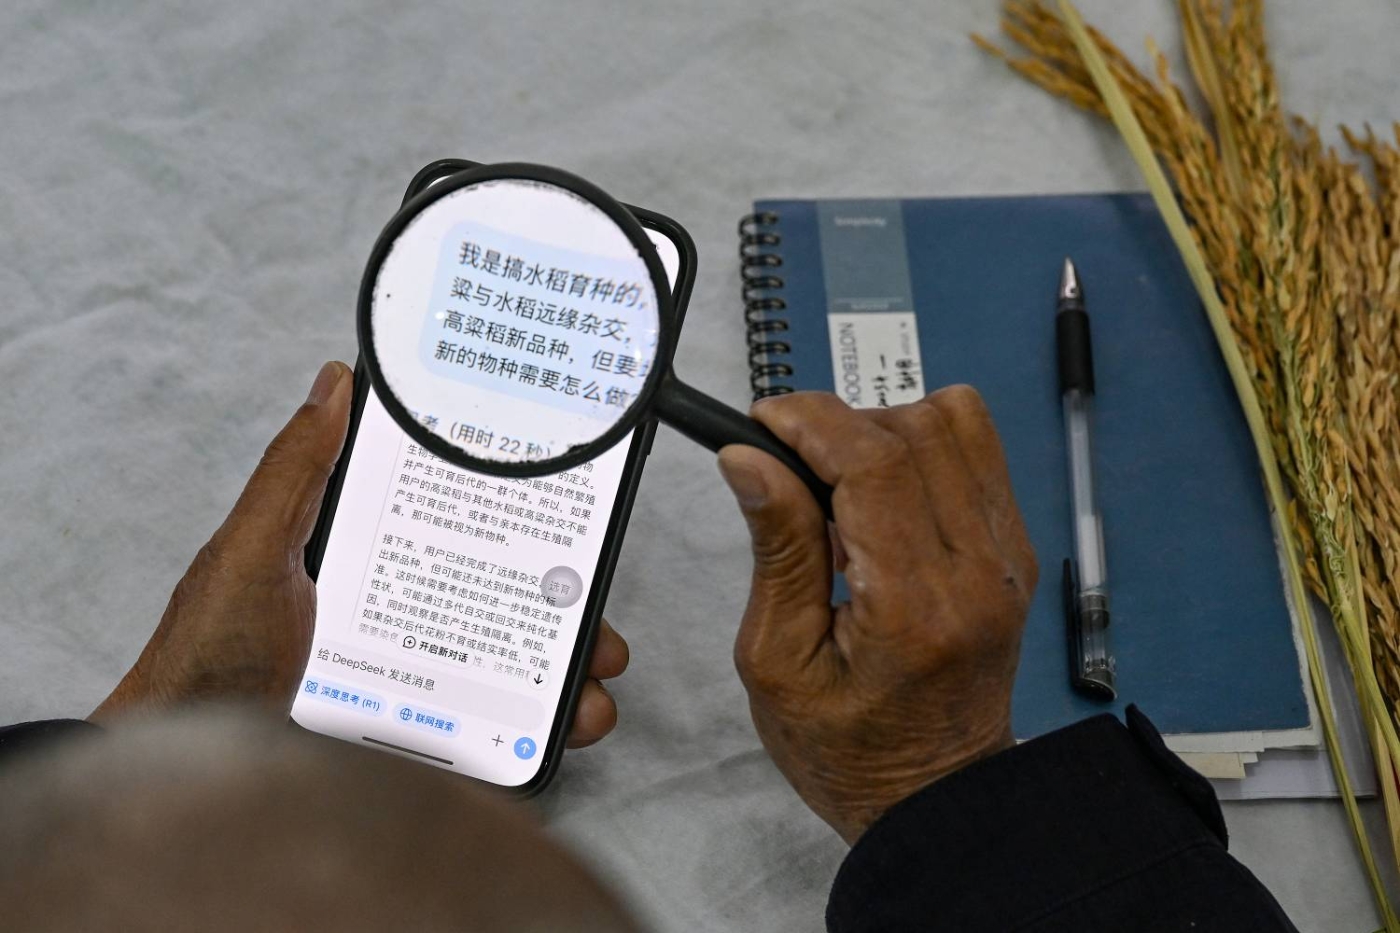 我是搞水稻育种的,
粱与水稻远缘杂交,
高粱稻新品种,但要
新的物种需要怎么做?
考(用时 22 秒)
的定义。
为能够自然繁殖
并产生可育后代的一群个体。所以,如果
用户的高粱稻与其他水稻或高粱杂交不能
产生可育后代,或者与亲本存在生殖隔
离,那可能被视为新物种。
接下来,用户已经完成了远缘杂交,
出新品种,但可能还未达到新物种的标
准。这时候需要考虑如何进一步稳定遗传
性状,可能通过多代自交或回交来纯化基
因,同时观察是否产生生殖隔离。例如,
如果杂交后代花粉不育或结实率低,可能
需要染色
选育
开启新对话
性,这常用
给 DeepSeek 发送消息
深度思考 (R1)
联网搜索
NOTEBOOK